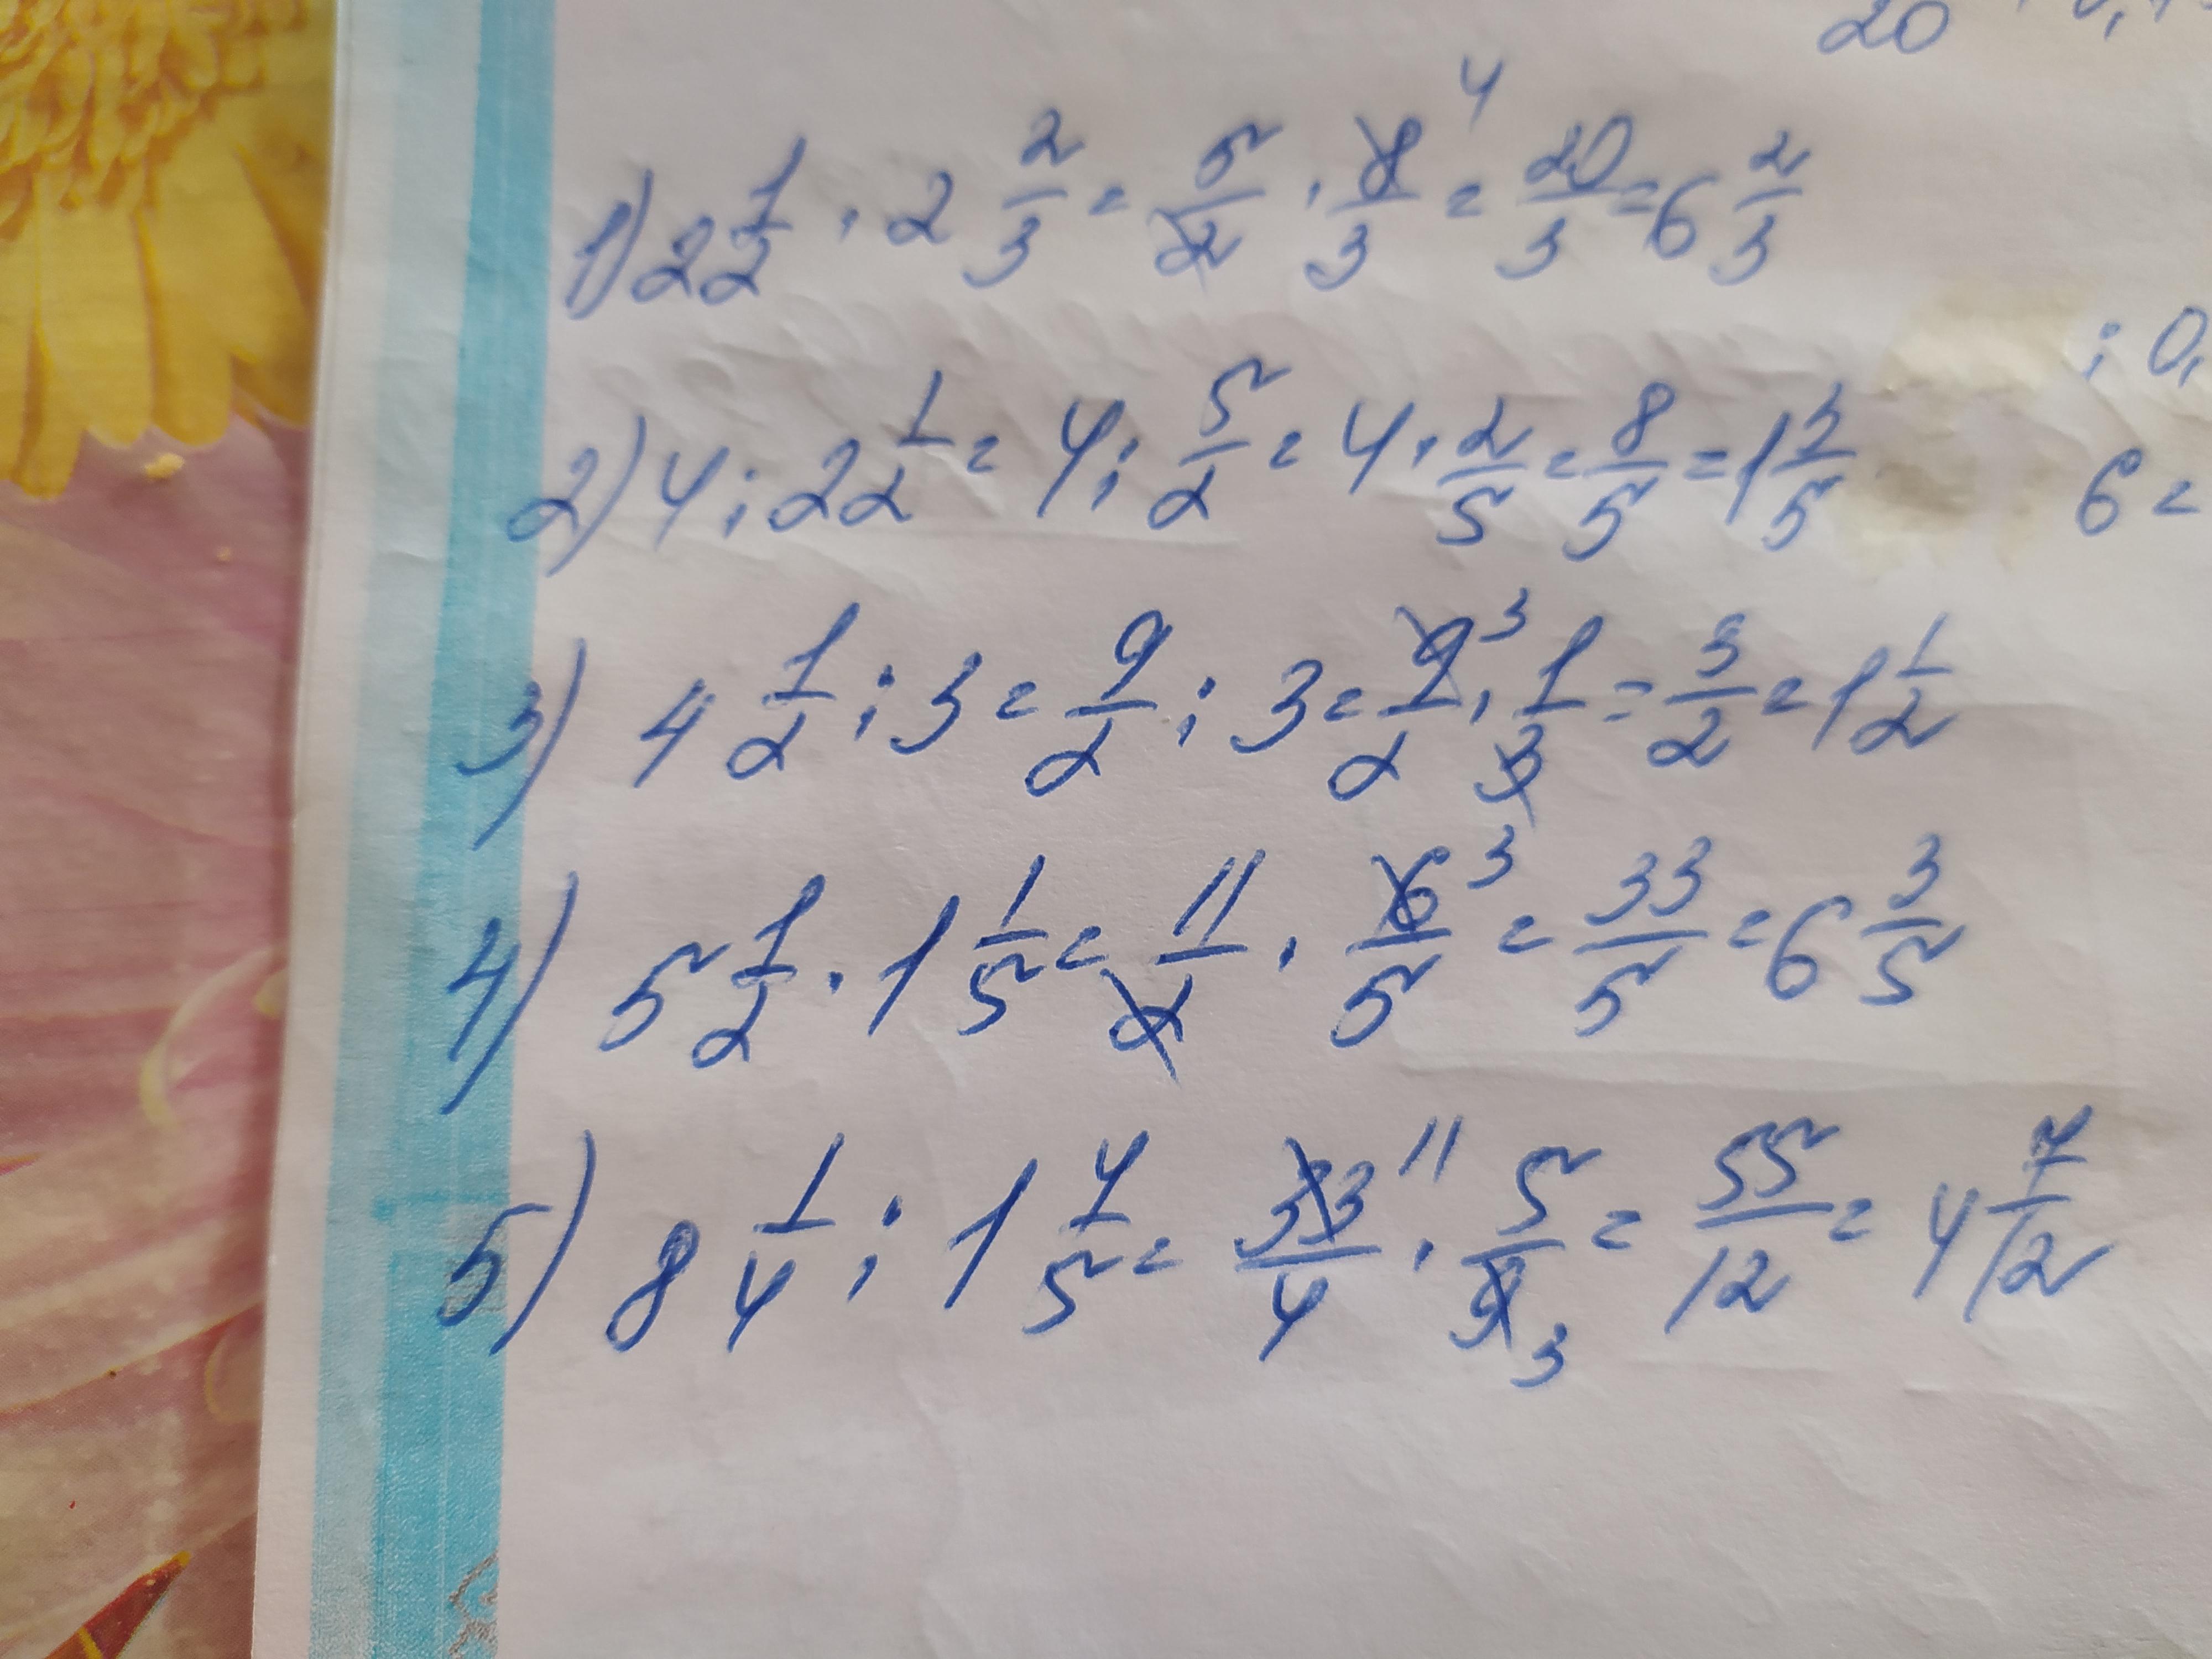 20
1) 2 1/2 · 2 2/3 = 5/2 · 8/3 4 = 20/3 = 6 2/3
: 0,
2) 4 : 2 1/2 = 4 : 5/2 = 4 · 2/5 = 8/5 = 1 3/5
6 =
3) 4 1/2 : 3 = 9/2 : 3 = 9/2 3 · 1/3 = 3/2 = 1 1/2
4) 5 1/2 · 1 1/5 = 11/2 · 6/5 3 = 33/5 = 6 3/5
5) 8 1/4 : 1 4/5 = 33/4 11 · 5/9 3 = 55/12 = 4 7/12